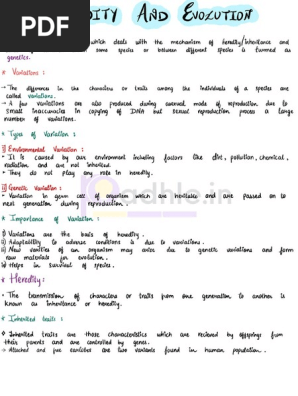 PDF
DITY AND EVOLUTION
which deals with the mechanism of heredity/inheritance and
some species or between different species is turned as
genetics.
* Variations :
→ The differences in the characters or traits among the individuals of a species are
called variations.
→ A few variations are also produced during asexual mode of reproduction due to
small inaccuracies in copying of DNA but sexual reproduction process a large
number of variations.
* Types of Variation :
i) Environmental Variation :
• It is caused by our environment including factors like diet, pollution, chemical,
radiation and are not inherited.
• They do not play any role in heredity.
ii) Genetic Variation :
• Variation in germ cell of organism which are heritable and are passed on to
next generation during reproduction.
adhle.in
* Importance of Variation :
i) Variations are the basis of heredity.
ii) Adaptability to adverse conditions is due to variations.
iii) New varities of an organism may arise due to genetic variations and form
raw materials for evolution.
iv) Helps in survival of species.
* Heredity :
• The transmission of characters or traits from one generation to another is
known as inheritance or heredity.
* Inherited traits :
Inherited traits are those characteristics which are recieved by offsprings from
their parents and are controlled by genes.
→ Attached and free earlobes are two variants found in human population.